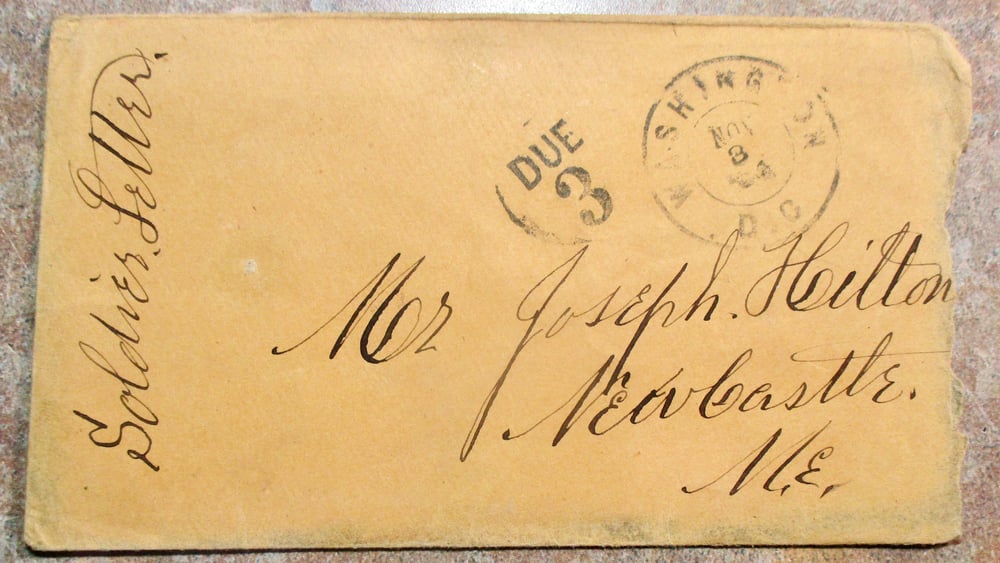 Soldier. Letter.
DUE
3
WASHINGTON
NOV
3
D.C.
Mr Joseph. Hilton
NewCastle.
M.E.